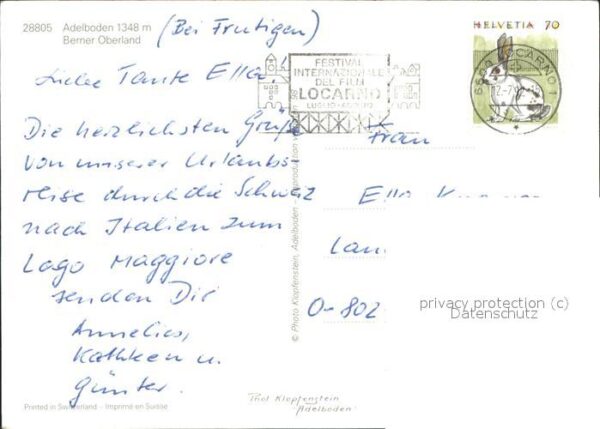 28805 Adelboden 1348 m (Bei Frutigen)
Berner Oberland
HELVETIA 70
FESTIVAL
INTERNAZIONALE
DEL FILM
LOCARNO
LUGLIO-AGOSTO
LOCARNO 1
Liebe Tante Ella!
Die herzlichsten Grüße
von unserer Urlaubs-
reise durch die Schweiz
nach Italien zum
Lago Maggiore
senden Dir
Annelies,
Kathleen u.
Günter.
Frau
Ella
Lan
O-802
© Photo Klopfenstein, Adelboden
privacy protection (c)
Datenschutz
Printed in Switzerland - Imprimé en Suisse
Phot Klopfenstein
Adelboden